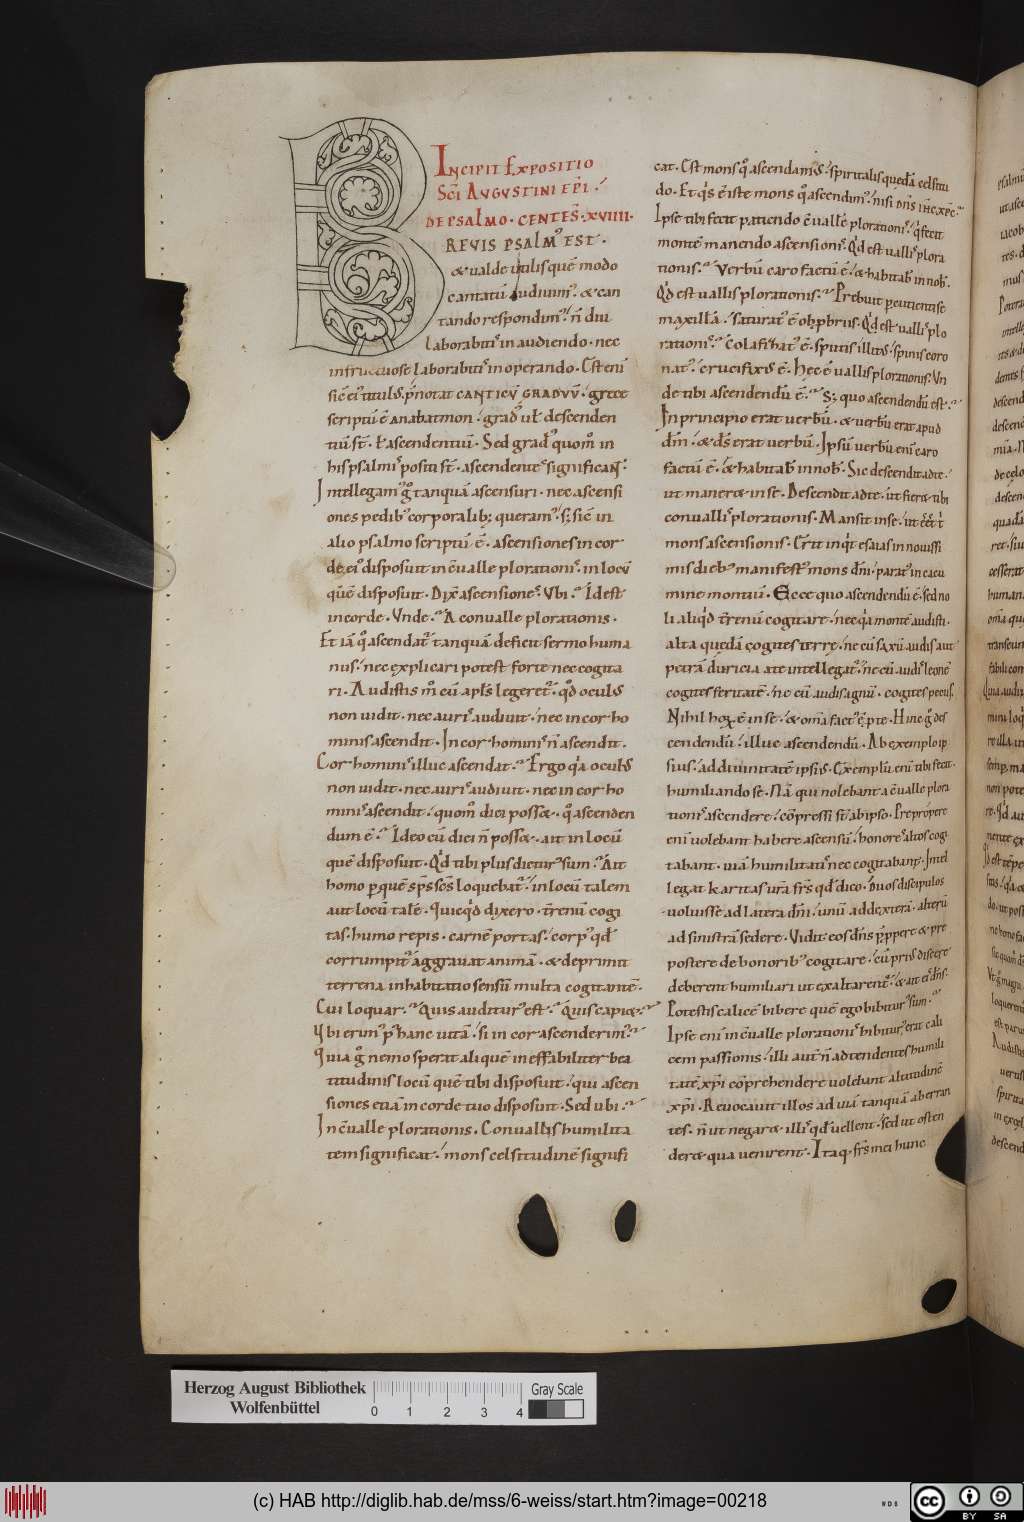 INCIPIT EXPOSITIO
SCI AVGVSTINI EPI.
DE PSALMO. CENTES. XVIIII.
REVIS PSALM' EST.
& ualde utilis quē modo
cantatū audiuim'. & can
tando respondim'. n̄ diu
laborabit' in audiendo. nec
infructuose laborabit' in operando. Est enī
sic̄ ei' titul'. p̄notat CANTICV̄ GRADVV̄. grece
scriptū ē anabatmon. grad' ul̄ descenden
tiū st̄. ł ascendentiū. Sed grad' quom̄ in
his psalmi' positi st̄. ascendente' significan̄t.
Intellegam' g̊ tanquā ascensuri. nec ascensi
ones pedib' corporalib; queram'. s; sic̄ in
alio psalmo scriptū ē. ascensiones in cor
de ei' disposuit in c̄ualle ploration̄. in locū
quē disposuit. Dix̄ ascensione'. Vbi. Id est
in corde. Vnde. A conualle plorationis.
Et iā quo ascendat' tanquā deficit sermo huma
nus. nec explicari potest forte nec cogita
ri. Audistis m̊ cū apl's legeret'. qd̄ ocul'
non uidit. nec auri' audiuit. nec in cor ho
minis ascendit. In cor homini' n̄ ascendit.
Cor homini' illuc ascendat. Ergo qa ocul'
non uidit. nec auri' audiuit. nec in cor ho
mini' ascendit. quom̊ dici poss&. quo ascenden
dum ē. Ideo cū dici n̄ poss&. ait in locū
quē disposuit. Qd̄ tibi plus dictur' sum. Ait
homo p quē sp̄s sc̄s loquebat'. in locū talem
aut locū talē. Quicqd̄ dixero. t̄renū cogi
tas. humo repis. carnē portas. corp' qd̄
corrumpit' aggrauat animā. & deprimit
terrena inhabitatio sensū multa cogitantē.
Cui loquar. Quis auditur' est. Quis capi&.
Vbi erim' p' hanc uitā. si in cor ascenderim'.
Quia g̊ nemo sperat aliquē ineffabiliter bea
titudinis locū quē tibi disposuit. qui ascen
siones etiā in corde tuo disposuit. Sed ubi.
In c̄ualle plorationis. Conuallis humilita
tem significat. mons celsitudinē signifi
cat. Est mons quo ascendam'. spiritalis quedā celsitu
do. Et qs̄ ē iste mons quo ascendim'. nisi dn̄s ihc xpc.
Ipse tibi fecit patiendo c̄uallē ploration̄. q fecit
montē manendo ascension̄. Qd̄ est ualli' plora
tionis. Verbū caro factū ē. & habitab̄ in nob̄.
Qd̄ est uallis plorationis. Prebuit percutienti se
maxillā. saturat' ē obprobriis. Qd̄ est ualli' plo
ration̄. Colafizat' ē. sputis illit'. spinis coro
nat'. crucifix' ē. Hec ē uallis plorationis. Vn
de tibi ascendendū ē. S; quo ascendendū est.
In principio erat uerbū. & uerbū erat apud
dm̄. & ds̄ erat uerbū. Ipsū uerbū enī caro
factū ē. & habitab̄ in nob̄. Sic descendit ad te.
ut maner& in se. Descendit ad te. ut fier& tibi
conualli' plorationis. Mansit in se. ut e&̄ t̄
mons ascensionis. Erit inqt̄ esaias in nouissi
mis dieb' manifest' mons dn̄i. parat' in cacu
mine montiū. Ecce quo ascendendū ē. sed no
li aliqd̄ t̄renū cogitare. nec qa montē audisti.
alta quedā cogites terre. ne cū saxū audis aut
petrā duricia ate intellegat'. ne cū audi' leonē
cogites feritatē. ne cū audis agnū. cogites pecus.
Nihil hox ē in se. & om̄a fact' ē p te. Hinc g̊ des
cendendū. illuc ascendendū. Ab exemplo ip
sius. ad diuinitatē ipsi'. Exemplū enī tibi fecit.
humiliando se. Nā qui nolebant a c̄ualle plora
tion̄ ascendere. cōpressi st̄ ab ipso. Prepropere
enī uolebant habere ascensū. honore' altos cogi
tabant. uiā humilitati' nec cogitabant. Intel
legat karitas ur̄a frs̄ qd̄ dico. Duos discipulos
uoluisse ad latera dn̄i. unū ad dexterā. alterū
ad sinistrā sedere. Vidit eos dn̄s p̄ppere & pre
postere de honorib' cogitare. cū pri' discere
deberent humiliari ut exaltarent'. & ait ei' dn̄s.
Potestis calicē bibere quē ego bibitur' sum.
Ipse enī in c̄ualle ploration̄ bibitur' erat cali
cem passionis. illi aut n̄ adtendentes humili
tatē xpi cōprehendere uolebant altitudinē
xpi. Reuocauit illos ad uiā tanquā aberran
tes. n̄ ut negar& illi' qd̄ uellent. sed ut osten
der& qua uenirent. Itaq. frs̄ mei hunc
Herzog August Bibliothek
Wolfenbüttel
0 1 2 3 4
Gray Scale
(c) HAB http://diglib.hab.de/mss/6-weiss/start.htm?image=00218
cc BY SA